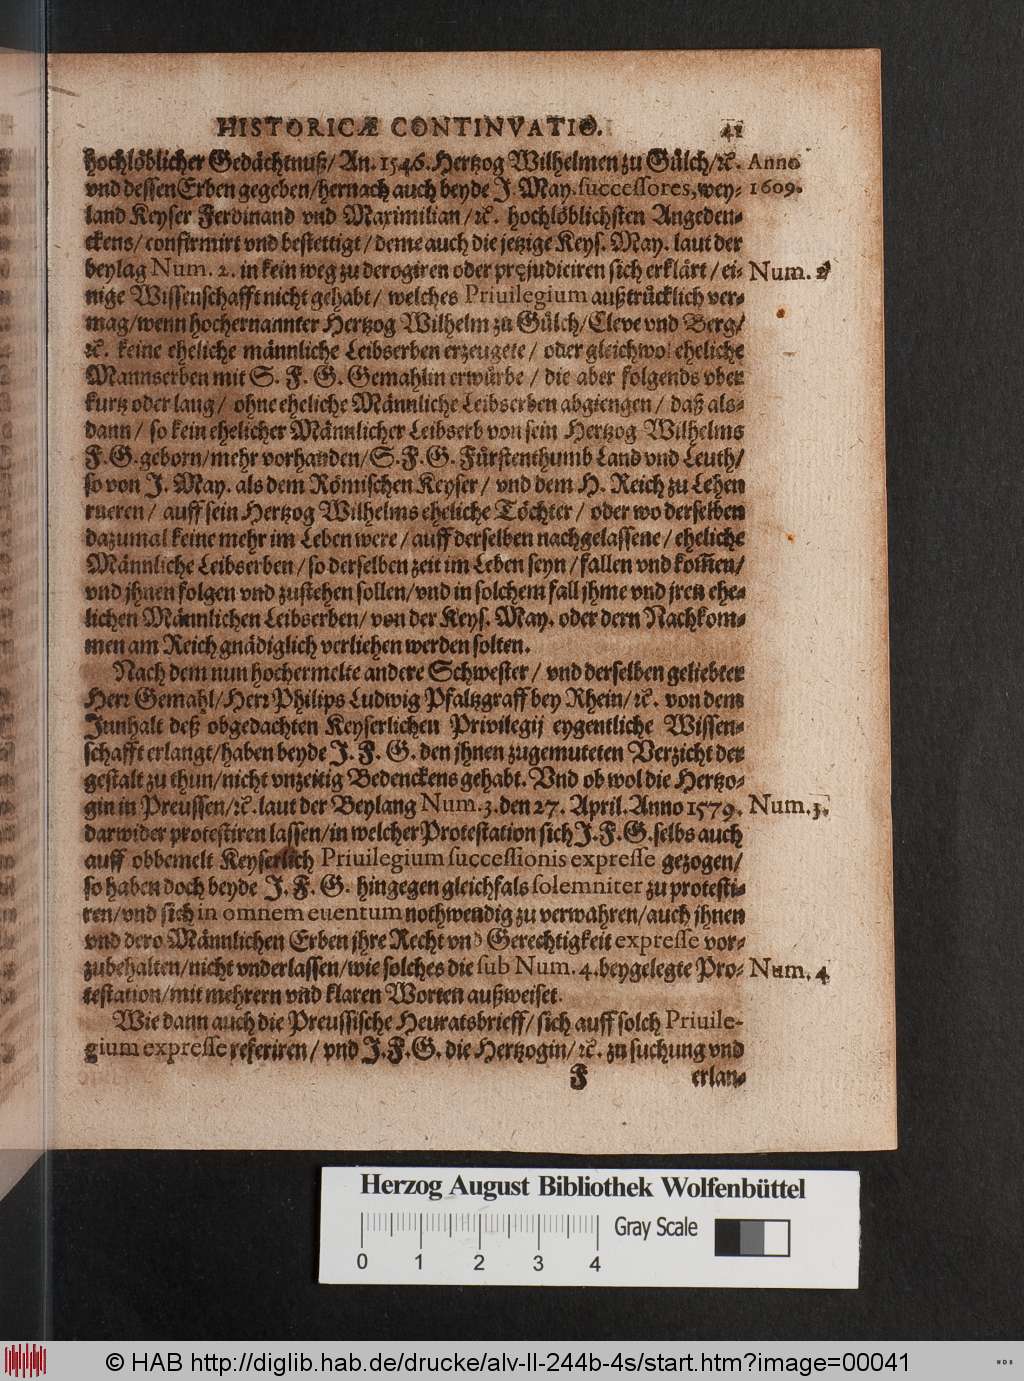 HISTORICÆ CONTINVATIO. 41
hochlöblicher Gedächtnuß/ An. 1546. Hertzog Wilhelmen zu Gülch/ꝛc. Anno
vnd dessen Erben gegeben/hernach auch beyde J. May. successores, wey- 1609.
land Keyser Ferdinand vnd Maximilian/ꝛc. hochlöblichsten Angeden-
ckens/ confirmirt vnd bestettigt/ deme auch die jetzige Keys. May. laut der
beylag Num. 2. in kein weg zu derogiren oder pręjudiciren sich erklärt/ ei- Num. 2
nige Wissenschafft nicht gehabt/ welches Priuilegium außtrücklich ver-
mag/wenn hochernannter Hertzog Wilhelm zu Gülch/Cleve vnd Berg/
ꝛc. keine eheliche männliche Leibserben erzeugete/ oder gleichwol eheliche
Mannserben mit S. F. G. Gemahlin erwürbe/ die aber folgends vber
kurtz oder lang/ ohne eheliche Männliche Leibserben abgiengen/ daß als-
dann/ so kein ehelicher Männlicher Leibserb von sein Hertzog Wilhelms
F. G. geborn/mehr vorhanden/S. F. G. Fürstenthumb Land vnd Leuth/
so von J. May. als dem Römischen Keyser/ vnd dem H. Reich zu Lehen
rueren/ auff sein Hertzog Wilhelms eheliche Töchter/ oder wo derselben
dazumal keine mehr im Leben were/auff derselben nachgelassene/eheliche
Männliche Leibserben/so derselben zeit im Leben seyn/fallen vnd kom̃en/
vnd jhnen folgen vnd zustehen sollen/vnd in solchem fall jhme vnd jren ehe-
lichen Männlichen Leibserben/von der Keys. May. oder dern Nachkom-
men am Reich gnädiglich verliehen werden solten.
Nach dem nun hochermelte andere Schwester/ vnd derselben geliebter
Herr Gemahl/Herr Philips Ludwig Pfaltzgraff bey Rhein/ꝛc. von dem
Innhalt deß obgedachten Keyserlichen Privilegij eygentliche Wissen-
schafft erlangt/haben beyde J. F. G. den jhnen zugemuteten Verzicht der
gestalt zu thun/nicht vnzeitig Bedenckens gehabt. Vnd ob wol die Hertzo-
gin in Preussen/ꝛc. laut der Beylang Num. 3. den 27. April. Anno 1579. Num. 3.
darwider protestiren lassen/in welcher Protestation sich J. F. G. selbs auch
auff obbemelt Keyserlich Priuilegium successionis expresse gezogen/
so haben doch beyde J. F. G. hingegen gleichfals solemniter zu protesti-
ren/vnd sich in omnem euentum nothwendig zu verwahren/auch jhnen
vnd dero Männlichen Erben jhre Recht vnd Gerechtigkeit expresse vor-
zubehalten/nicht vnderlassen/wie solches die sub Num. 4. beygelegte Pro- Num. 4
testation/mit mehrern vnd klaren Worten außweiset.
Wie dann auch die Preussische Heuratsbrieff/ sich auff solch Priuile-
gium expresse referiren/ vnd J. F. G. die Hertzogin/ꝛc. zu suchung vnd
F erlan-
Herzog August Bibliothek Wolfenbüttel
Gray Scale
0 1 2 3 4
© HAB http://diglib.hab.de/drucke/alv-ll-244b-4s/start.htm?image=00041